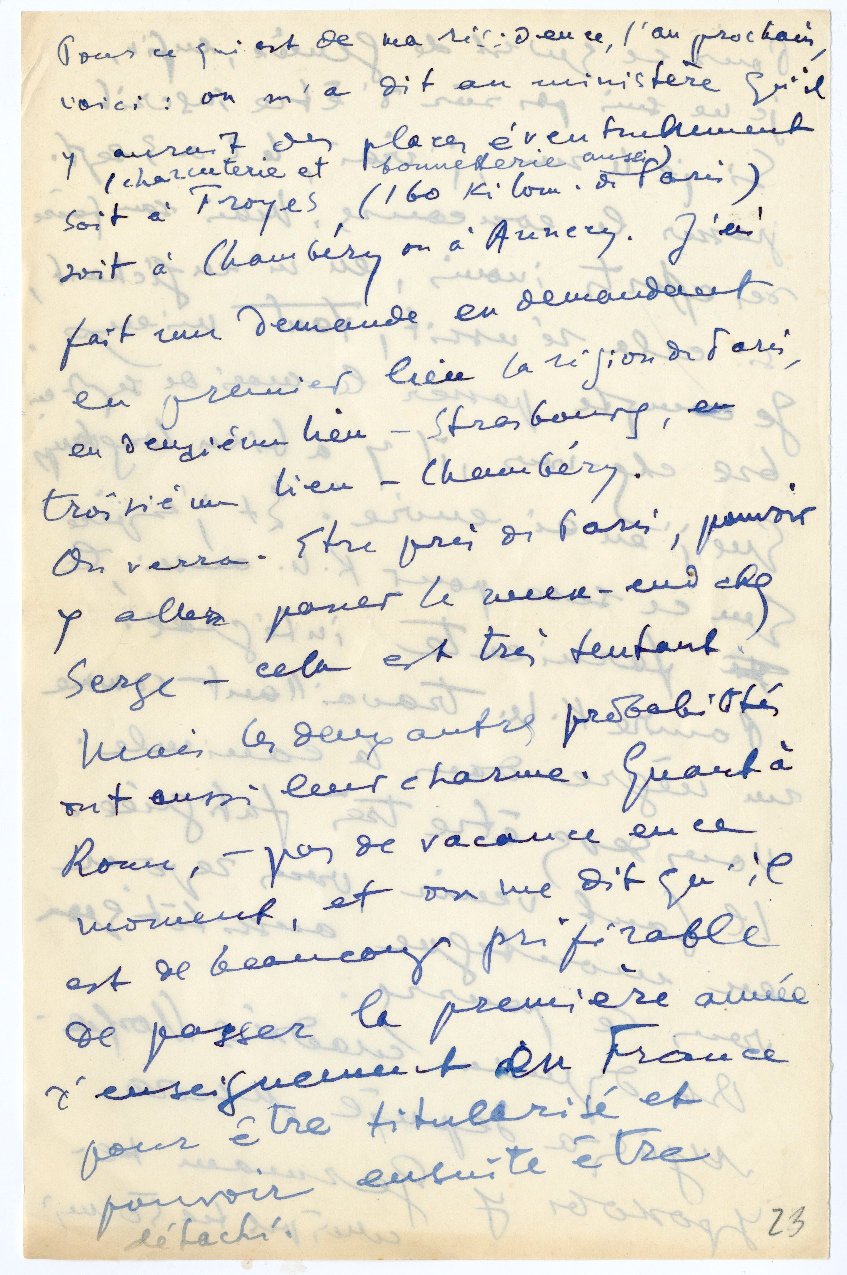 Pour ce qui est de ma résidence, l'an prochain,
voici : on m'a dit au ministère qu'il
y aurait des places éventuellement
(charcuterie et bonnetterie aussi)
soit à Troyes (160 kilom. de Paris)
soit à Chambéry ou à Annecy. J'ai
fait une demande en demandant
en premier lieu la région de Paris,
en deuxième lieu – Strasbourg, en
troisième lieu – Chambéry.
On verra. Etre près de Paris, pouvoir
y aller passer le week-end chez
Serge – cela est très tentant.
Mais les deux autres probabilités
ont aussi leur charme. Quant à
Rome, – pas de vacance en ce
moment, et on me dit qu'il
est de beaucoup préférable
de passer la première année
d'enseignement en France
pour être titularisé et
pouvoir ensuite être
détaché.
23